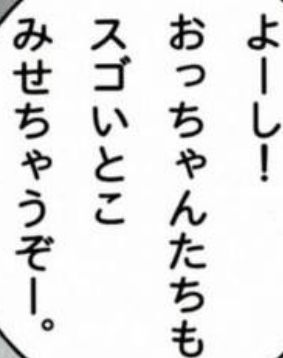 よーし！
おっちゃんたちも
スゴいとこ
みせちゃうぞー。